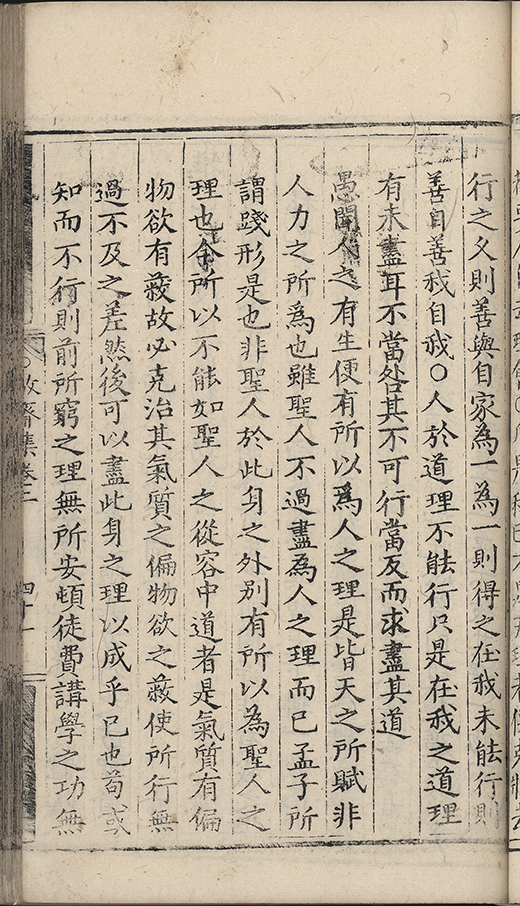 行之久則善與自家為一為一則得之在我未能行則
善自善我自我○人於道理不能行只是在我之道理
有未盡耳不當咎其不可行當反而求盡其道
愚聞人之有生便有所以為人之理是皆天之所賦非
人力之所為也雖聖人不過盡為人之理而已孟子所
謂踐形是也非聖人於此身之外別有所以為聖人之
理也今所以不能如聖人之從容中道者是氣質有偏
物欲有蔽故必克治其氣質之偏物欲之蔽使所行無
過不及之差然後可以盡此身之理以成乎已也苟或
知而不行則前所窮之理無所安頓徒費講學之功無
○敬齋集卷二
四十一